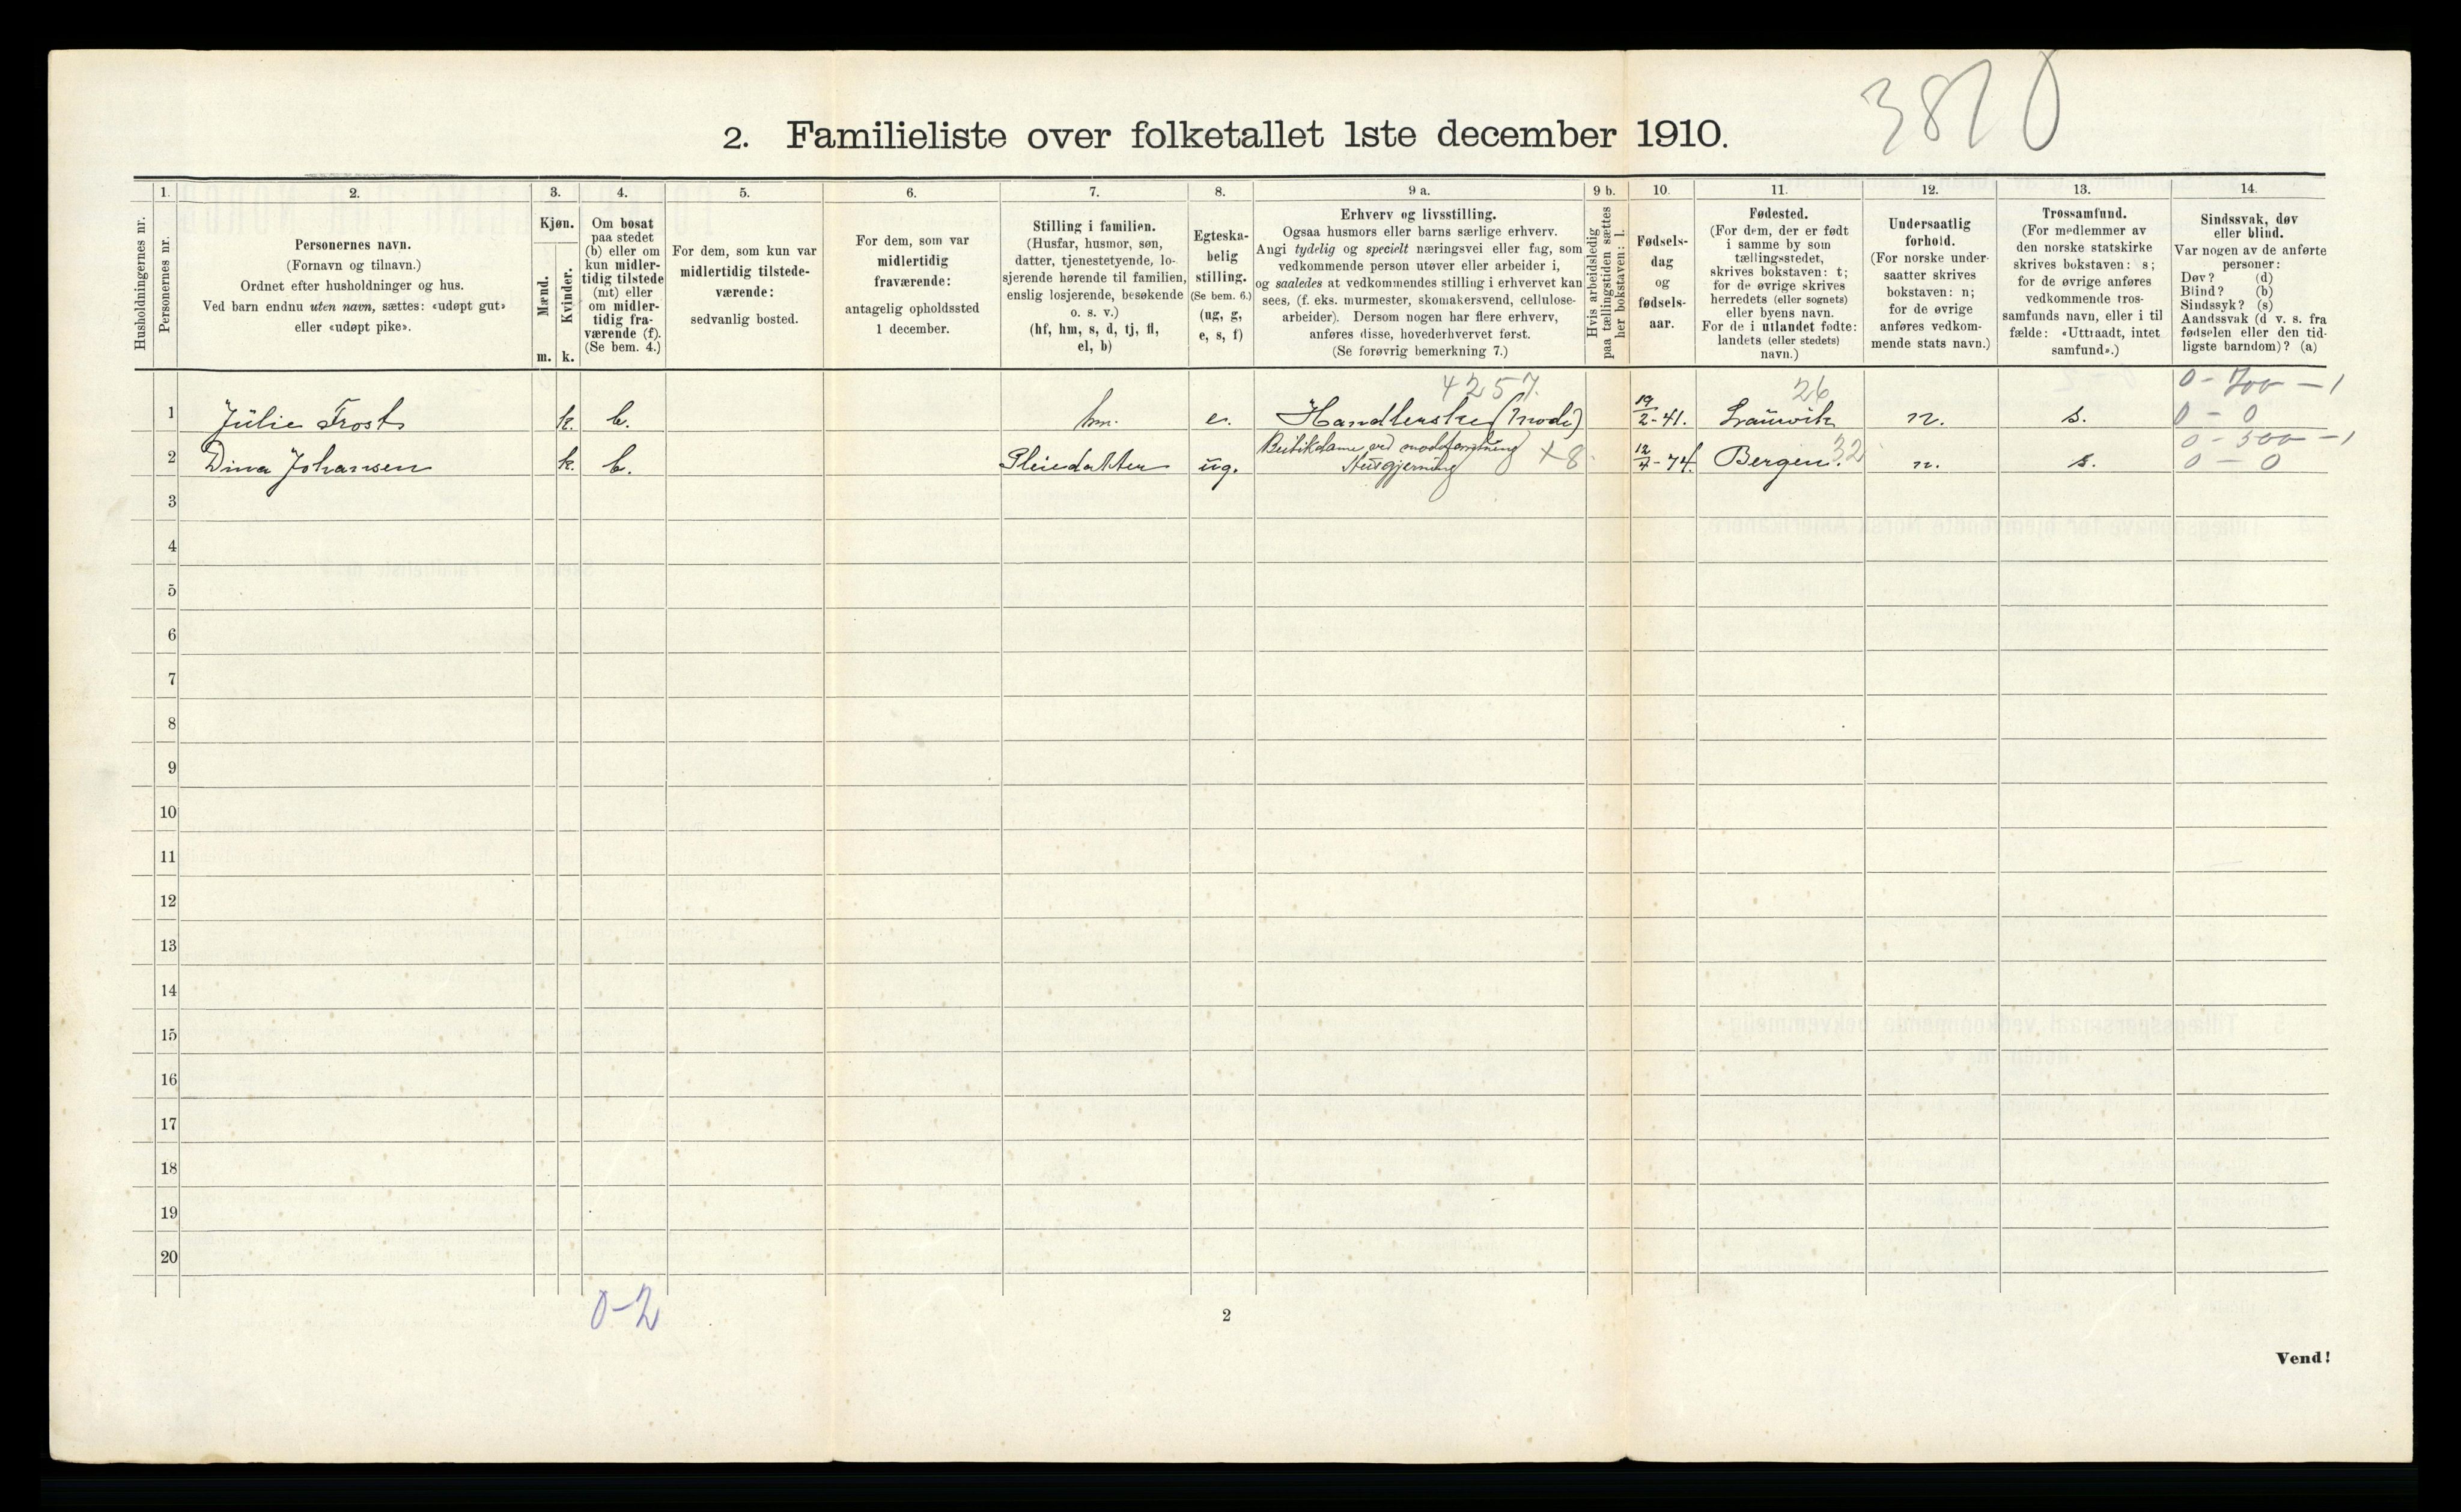 3810
2. Familieliste over folketallet 1ste december 1910.
1. 2. 3. 4. 5. 6. 7. 8. 9 a. 9 b. 10. 11. 12. 13. 14.
Husholdningernes nr.
Personernes nr.
Personernes navn.
(Fornavn og tilnavn.)
Ordnet efter husholdninger og hus.
Ved barn endnu uten navn, sættes: «udøpt gut»
eller «udøpt pike».
Kjøn.
Mænd.
Kvinder.
m. k.
Om bosat
paa stedet
(b) eller om
kun midler-
tidig tilstede
(mt) eller
om midler-
tidig fra-
værende (f).
(Se bem. 4.)
For dem, som kun var
midlertidig tilstede-
værende:
sedvanlig bosted.
For dem, som var
midlertidig
fraværende:
antagelig opholdssted
1 december.
Stilling i familien.
(Husfar, husmor, søn,
datter, tjenestetyende, lo-
sjerende hørende til familien,
enslig losjerende, besøkende
o. s. v.)
(hf, hm, s, d, tj, fl,
el, b)
Egteska-
belig
stilling.
(Se bem. 6.)
(ug, g,
e, s, f)
Erhverv og livsstilling.
Ogsaa husmors eller barns særlige erhverv.
Angi tydelig og specielt næringsvei eller fag, som
vedkommende person utøver eller arbeider i,
og saaledes at vedkommendes stilling i erhvervet kan
sees, (f. eks. murmester, skomakersvend, cellulose-
arbeider). Dersom nogen har flere erhverv,
anføres disse, hovederhvervet først.
(Se forøvrig bemerkning 7.)
Hvis arbeidsledig
paa tællingstiden sættes
her bokstaven: l.
Fødsels-
dag
og
fødsels-
aar.
Fødested.
(For dem, der er født
i samme by som
tællingsstedet,
skrives bokstaven: t;
for de øvrige skrives
herredets (eller sognets)
eller byens navn.
For de i utlandet fødte:
landets (eller stedets)
navn.)
Undersaatlig
forhold.
(For norske under-
saatter skrives
bokstaven: n;
for de øvrige
anføres vedkom-
mende stats navn.)
Trossamfund.
(For medlemmer av
den norske statskirke
skrives bokstaven: s;
for de øvrige anføres
vedkommende tros-
samfunds navn, eller i til
fælde: «Uttraadt, intet
samfund».)
Sindssvak, døv
eller blind.
Var nogen av de anførte
personer:
Døv? (d)
Blind? (b)
Sindssyk? (s)
Aandssvak (d v. s. fra
fødselen eller den tid-
ligste barndom)? (a)
4257. 26 0-700-1
1 Julie Frost k. b. hm. e. Handlerske (mode) 19/2-41. Laurvik n. s. 0-0
Butikdame ved modeforretning 0-500-1
2 Dina Johansen k. b. Pleiedatter ug. Husgjerning +8. 12/7-74. Bergen. 32 n. s. 0-0
3
4
5
6
7
8
9
10
11
12
13
14
15
16
17
18
19
20
0-2
2
Vend!